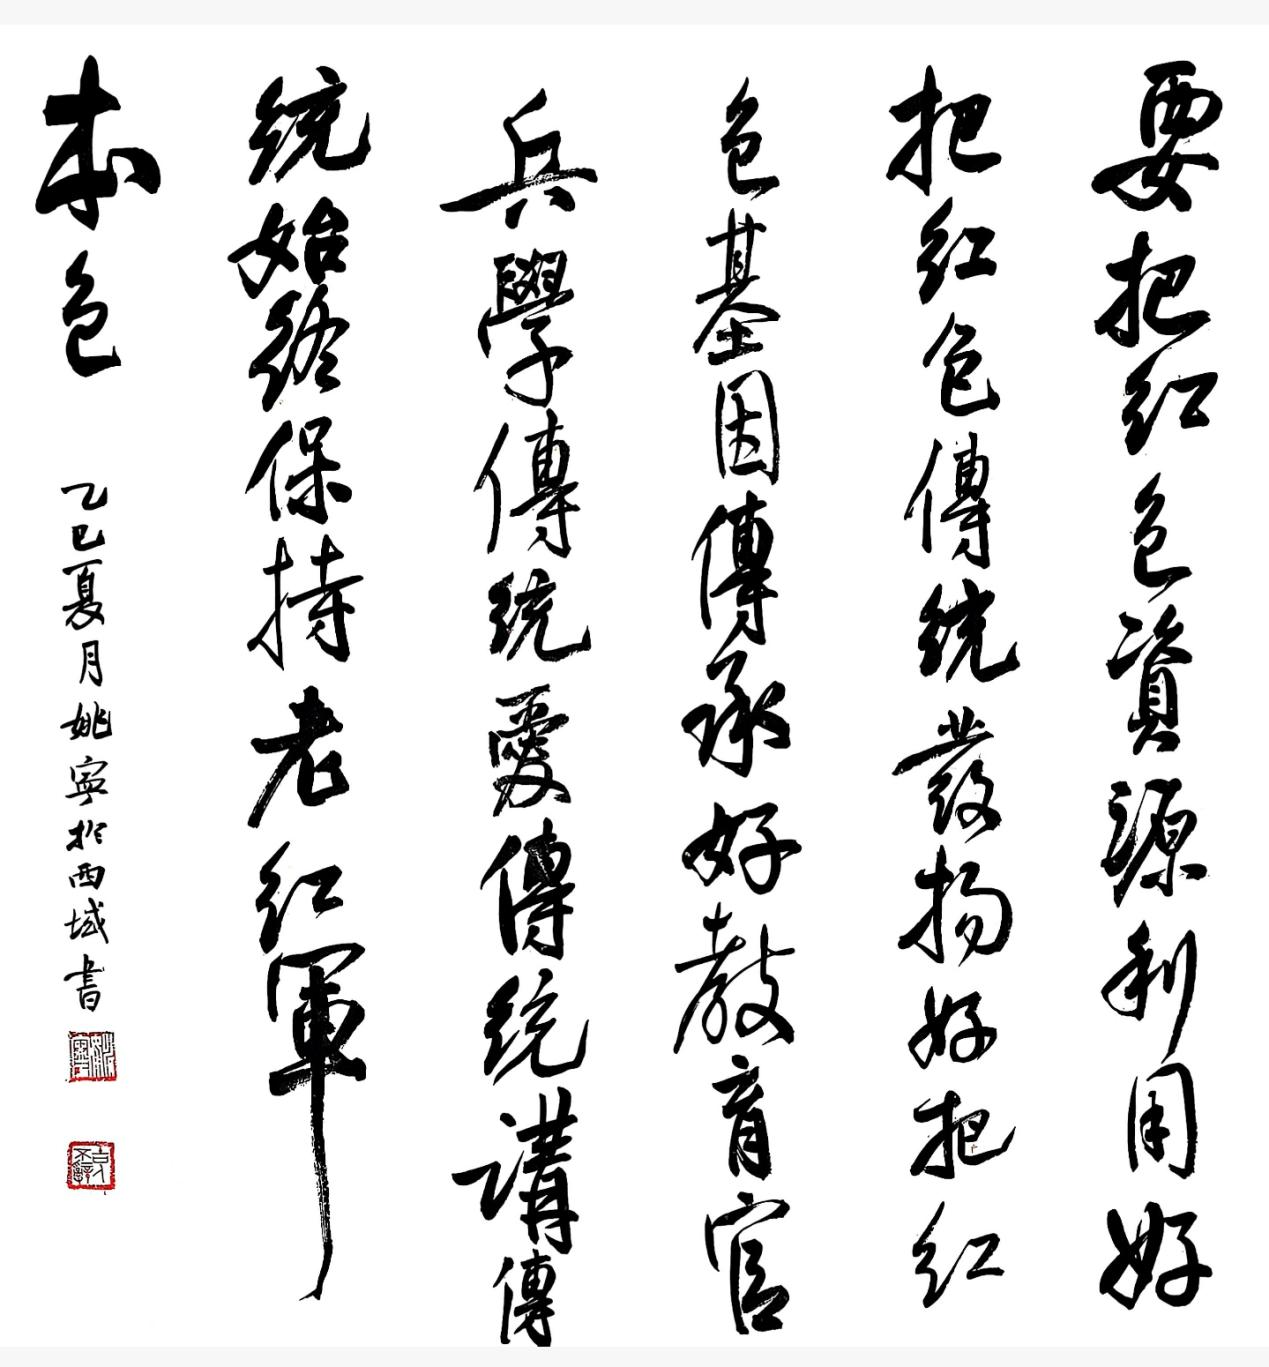 要把红色資源利用好
把红色傳統發扬好把红
色基因傳承好教育官
兵學傳統愛傳統講傳
統始終保持老红軍
本色
乙巳夏月姚寧於西城書